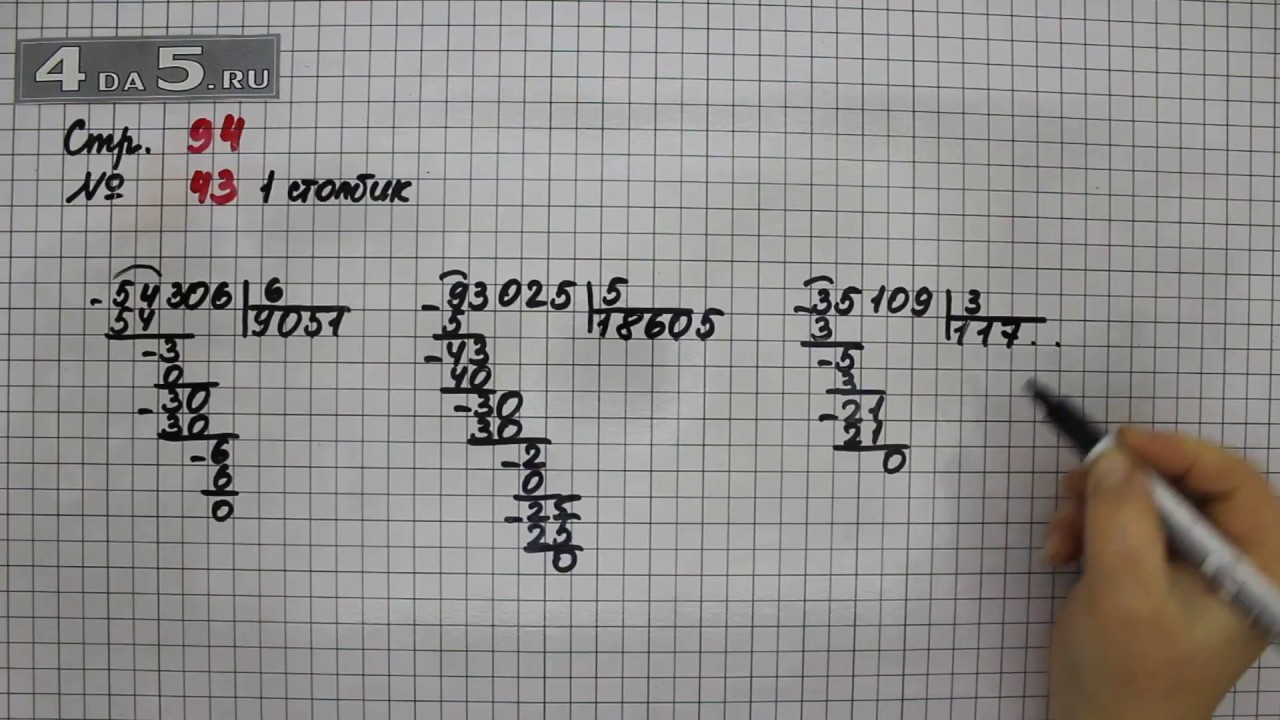 4 DA 5.RU
Стр. 94
№ 43 1 столбик
-54306 | 6
54 | 9051
-3
0
-30
30
-6
6
0
-93025 | 5
5 | 18605
-43
40
-30
30
-2
0
-25
25
0
-35109 | 3
3 | 117..
-5
3
-21
21
0